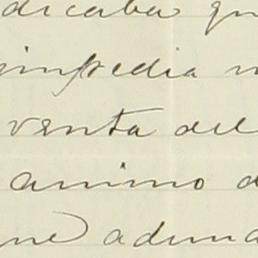 dicaba qu
impedia
venta del
animo d
ne aduna